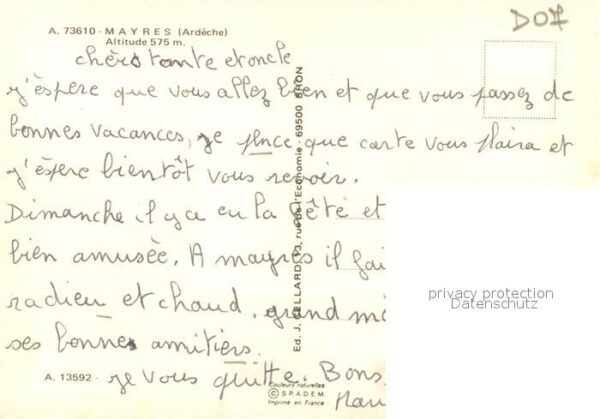 DO7
A. 73610 - MAYRES (Ardèche)
Altitude 575 m.
chèrs tante et oncle
j'éspère que vous allez bien et que vous passez de
bonnes vacances, je pence que carte vous plaira et
j'éspère bientôt vous revoir.
Dimanche il y a eu la fêté et
bien amusée. A mayres il fai
radieu et chaud. grand mè
ses bonnes amitiers.
je vous quitte. Bons
A. 13592 -
Couleurs naturelles
© S.P.A.D.E.M.
Imprimé en France
Ed. J. CELLARD, 13, rue de l'Economie - 69500 BRON
privacy protection
Datenschutz